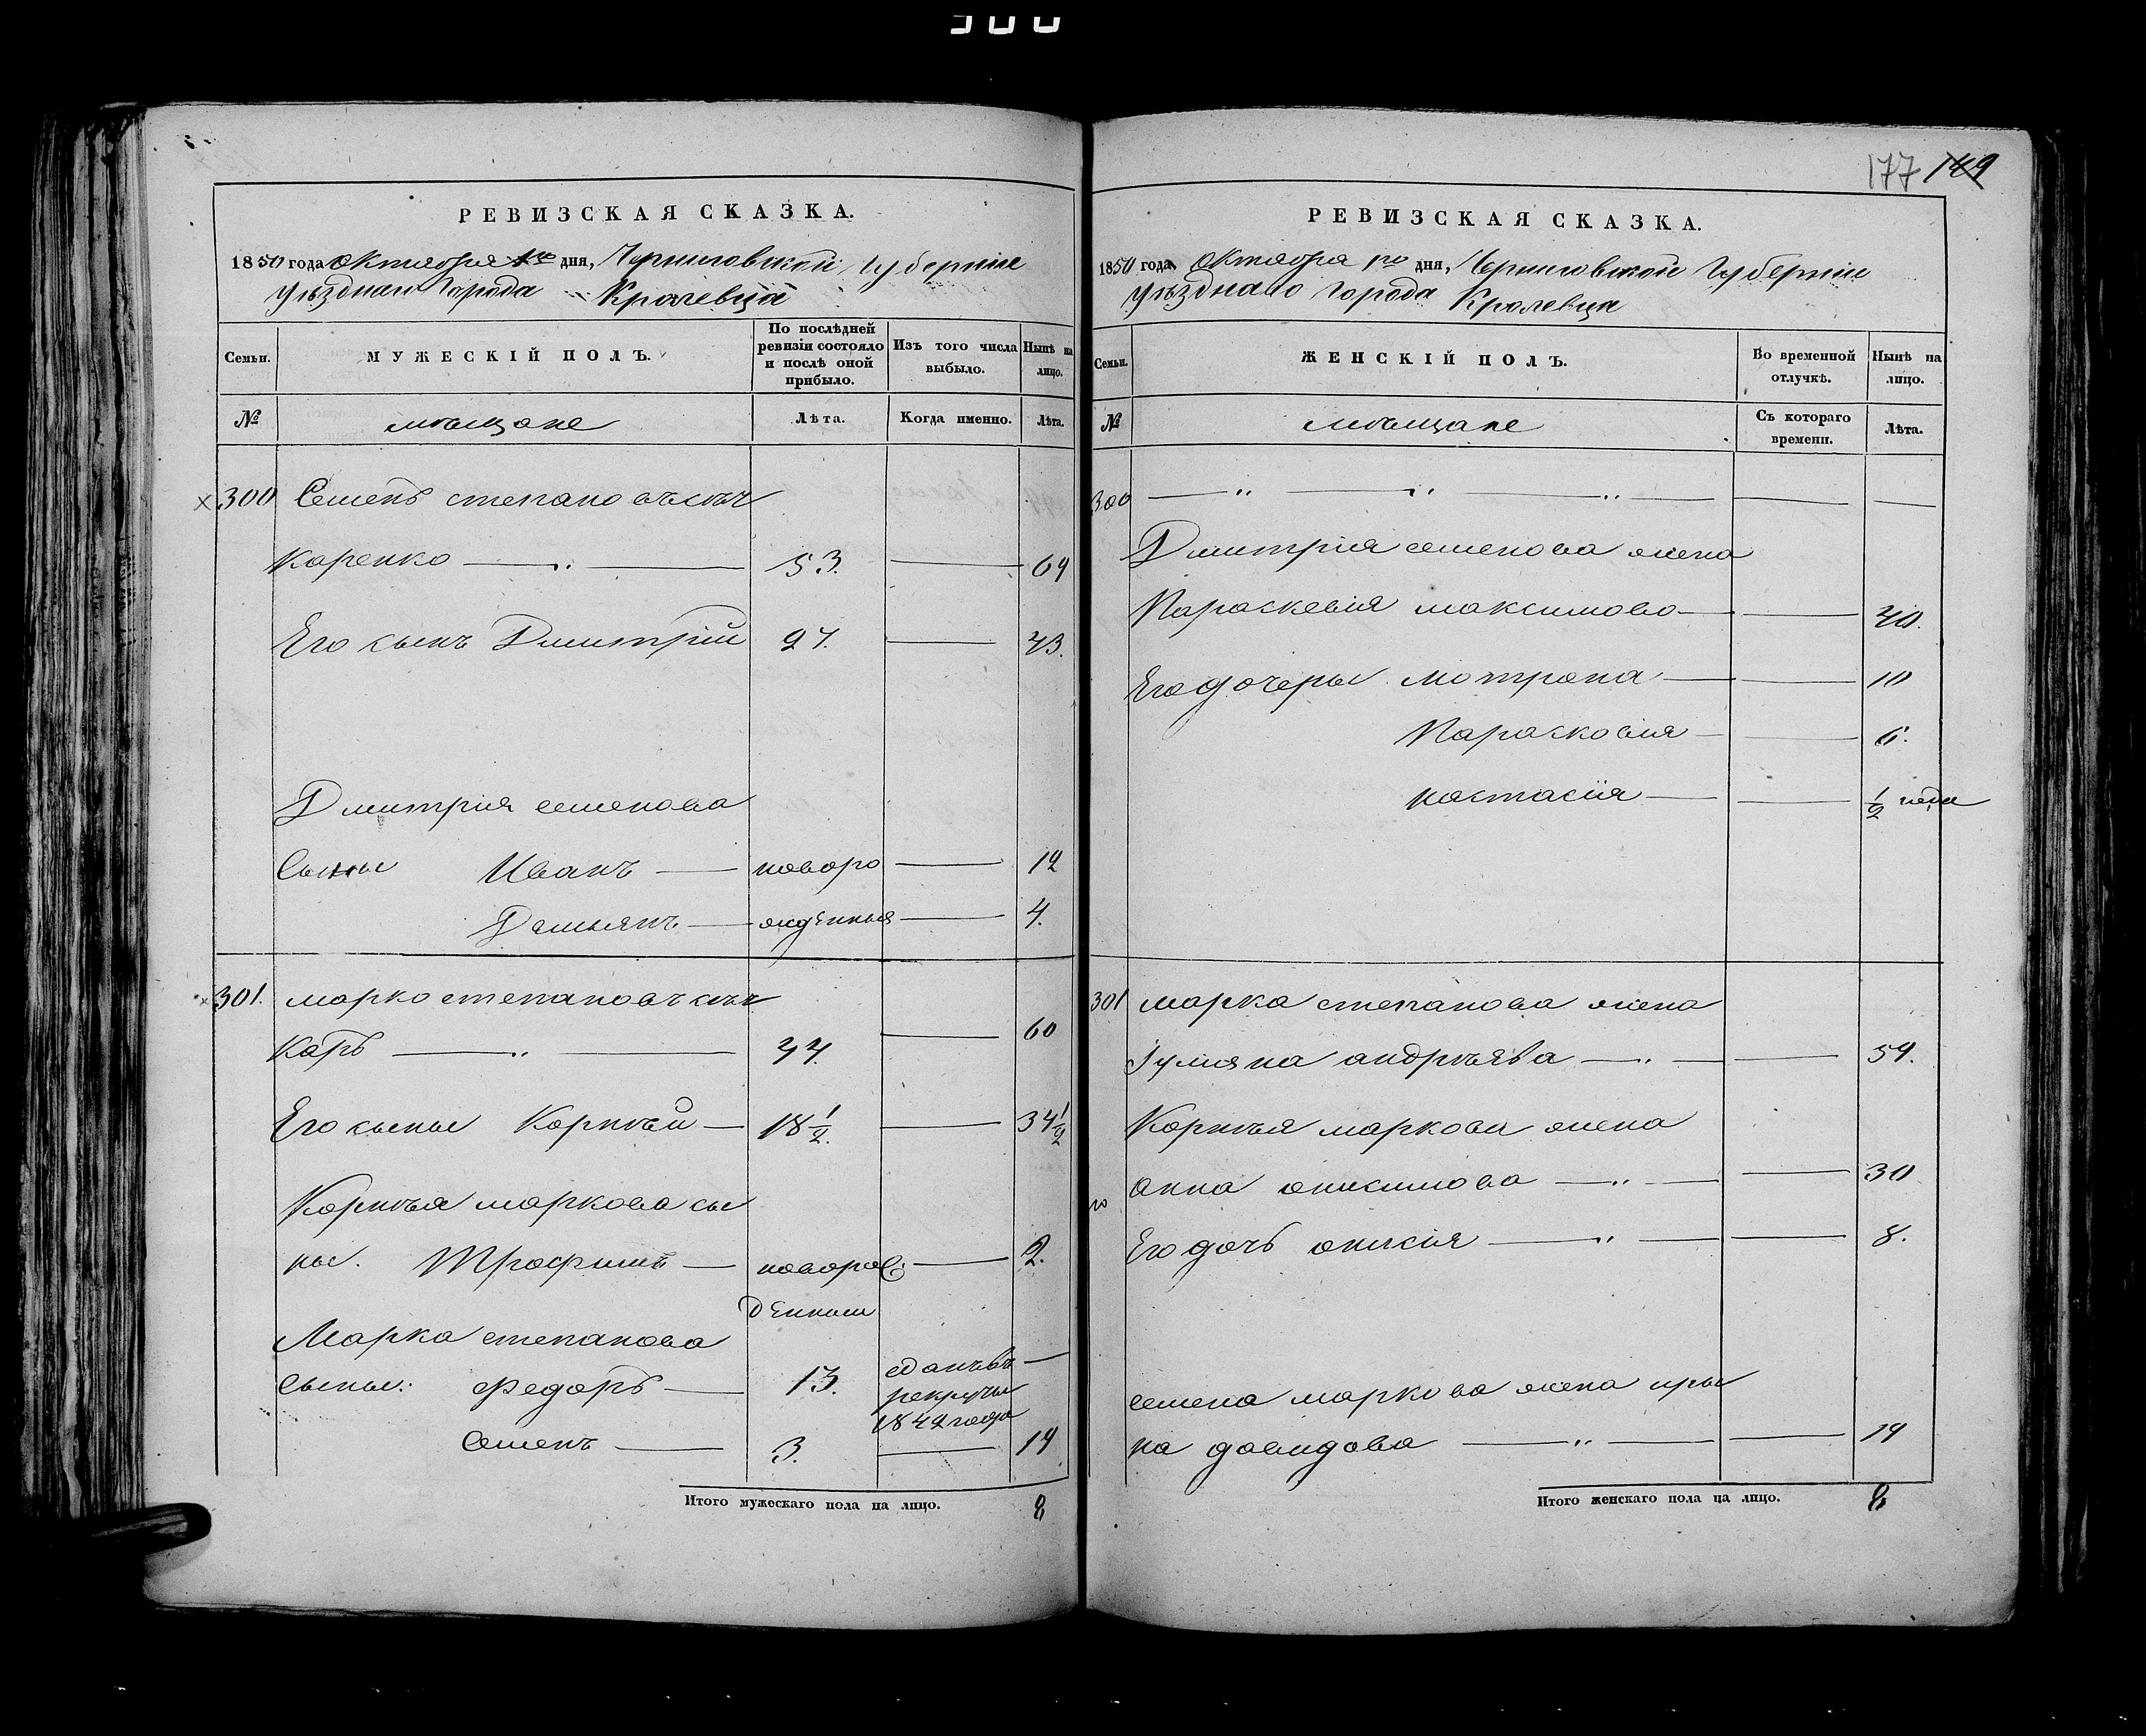 300
177 149
РЕВИЗСКАЯ СКАЗКА.
1850 года октября 1го дня, Черниговской Губерніи
Уѣзднаго Города Кролевца
Семьи. МУЖЕСКІЙ ПОЛЪ. По послѣдней ревизіи состояло и послѣ оной прибыло. Изъ того числа выбыло. Нынѣ на лицо.
№ мѣщане Лѣта. Когда именно. Лѣта.
300 Семенъ степановъ сынъ
Каренко 53. 69
Его сынъ Дмитрій 27. 43.
Дмитрія семенова
Сыны Иванъ новоро 12
Демьянъ жденныя 4.
301. марко степановъ сынъ
Каръ 44. 60
Его сыны Корнѣй 18 1/2. 34 1/2
Корнѣя маркова сы
ны. Трофимъ новорож 2.
денныи
Марка степанова
Сыны: Федоръ 13. сданъ въ
рекруты
1842 года
Семенъ 3. 19
Итого мужескаго пола на лицо. 8
РЕВИЗСКАЯ СКАЗКА.
1850 года октября 1го дня, Черниговской Губерніи
Уѣзднаго Города Кролевца
Семьи. ЖЕНСКІЙ ПОЛЪ. Во временной отлучкѣ. Нынѣ на лицо.
№ мѣщане Съ котораго времени. Лѣта.
300
Дмитрія семенова жена
Параскевія максимова 40.
Его дочеры мотрона 10
Парасковія 6.
настасія 1/2 года
301 марка степанова жена
Іулияна андрѣева 59.
Корнѣя маркова жена
Анна онисимова 30
Его дочь онисія 8.
семена маркова жена иры
на давидова 19
Итого женскаго пола на лицо. 8